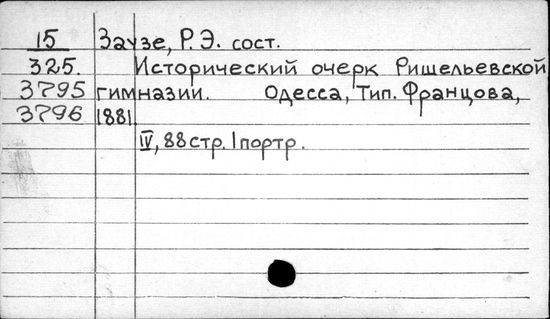 15 Заузе, Р. Э. сост.
325. Исторический очерк Ришельевской
3795 гимназии. Одесса, Тип. Францова,
3796 1881
IV, 88 стр. 1 портр.